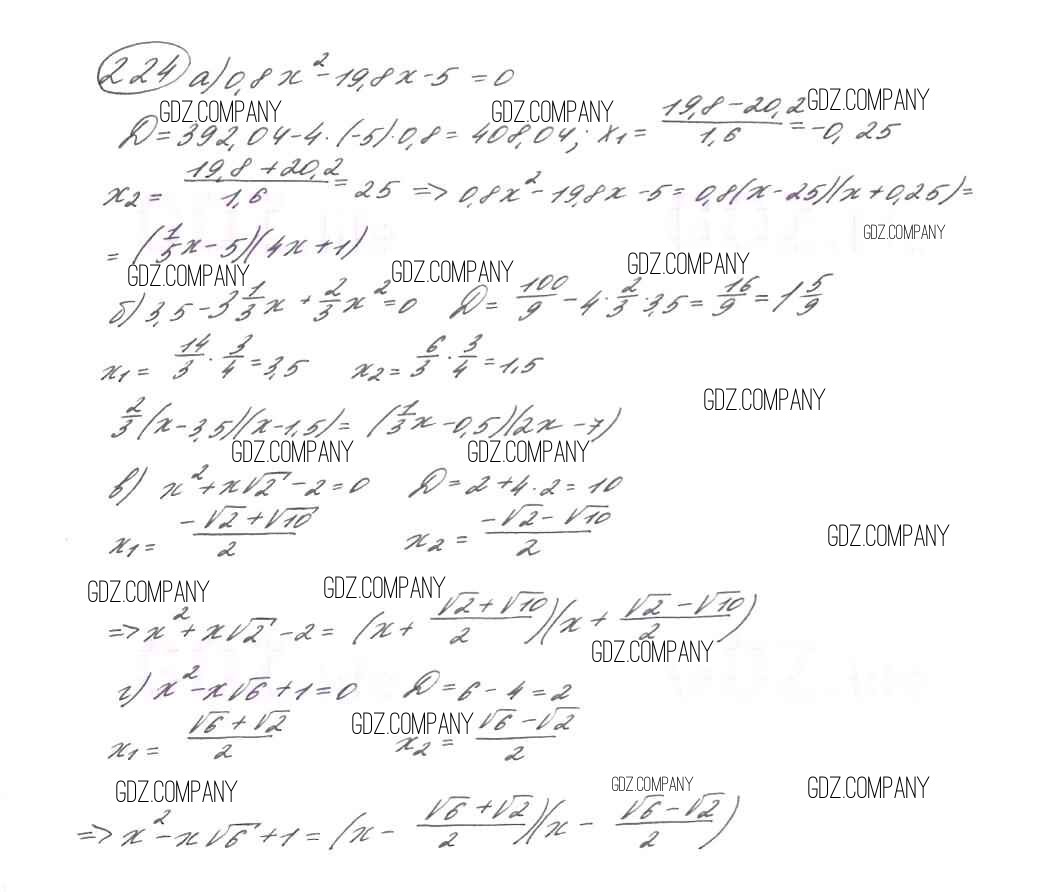 224 а) 0,8x² - 19,8x - 5 = 0
GDZ.COMPANY GDZ.COMPANY GDZ.COMPANY
D = 392,04 - 4 · (-5) · 0,8 = 408,04; x₁ = (19,8 - 20,2)/1,6 = -0,25
x₂ = (19,8 + 20,2)/1,6 = 25 => 0,8x² - 19,8x - 5 = 0,8(x - 25)(x + 0,25) =
GDZ.COMPANY
= (1/5x - 5)(4x + 1)
GDZ.COMPANY GDZ.COMPANY GDZ.COMPANY
б) 3,5 - 3 1/3x + 2/3x² = 0 D = 100/9 - 4 · 2/3 · 3,5 = 16/9 = 1 5/9
x₁ = 14/3 · 3/4 = 3,5 x₂ = 6/3 · 3/4 = 1,5
GDZ.COMPANY
2/3(x - 3,5)(x - 1,5) = (1/3x - 0,5)(2x - 7)
GDZ.COMPANY GDZ.COMPANY
в) x² + x√2 - 2 = 0 D = 2 + 4 · 2 = 10
x₁ = (-√2 + √10)/2 x₂ = (-√2 - √10)/2
GDZ.COMPANY
GDZ.COMPANY GDZ.COMPANY
=> x² + x√2 - 2 = (x + (√2 + √10)/2)(x + (√2 - √10)/2)
GDZ.COMPANY
г) x² - x√6 + 1 = 0 D = 6 - 4 = 2
GDZ.COMPANY
x₁ = (√6 + √2)/2 x₂ = (√6 - √2)/2
GDZ.COMPANY GDZ.COMPANY GDZ.COMPANY
=> x² - x√6 + 1 = (x - (√6 + √2)/2)(x - (√6 - √2)/2)